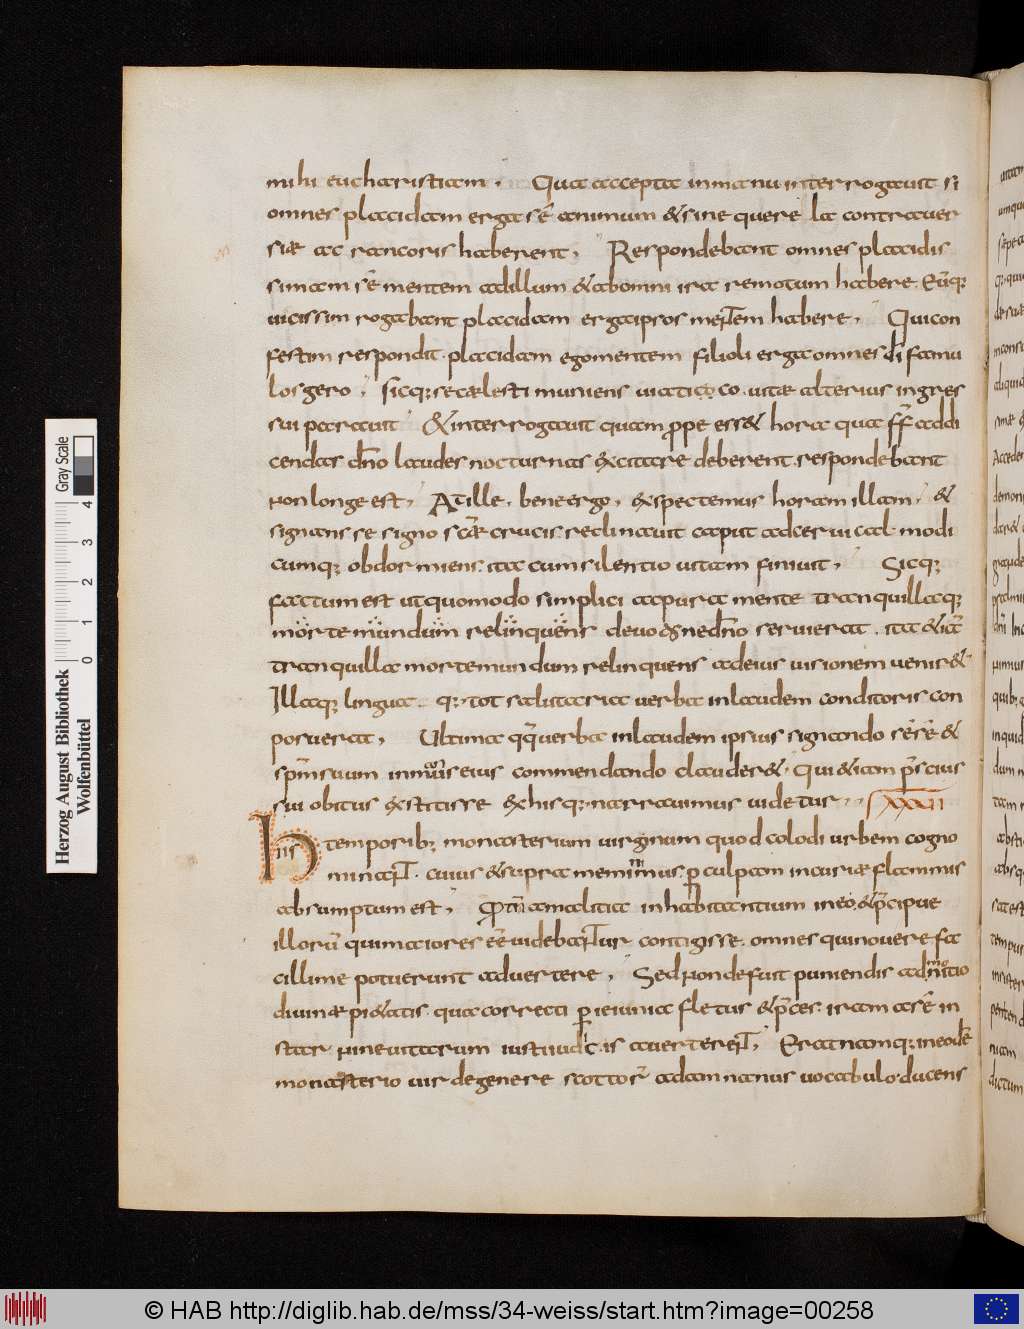 mihi eucharistiam. Qua accepta inmanu interrogauit si
omnes placidam erga sē animum & sine quere la contrauer
siæ ac rancoris haberent. Respondebant omnes placidis
simam sē mentem adillum & abomni ira remotum habere. Eūq;
uicissim rogabant placidam ergaipsos mentem habere. Quicon
festim respondit. placidam egomentem filioli ergaomnes dī famu
losgero. Sicq; secælesti muniens uiatico. uitæ alterius ingres
sui parauit & interrogauit quam prope ess& hora qua frr̄ addi
cendas dn̄o laudes nocturnas excitare deberent. respondebant
non longe est. At ille. bene ergo. expectemus horam illam. &
signans se signo scǣ crucis. reclinauit caput adceruical. modi
cumq; obdormiens. ita cum silentio uitam finiuit. Sicq;
factum est ut quomodo simplici acpura mente tranquillaq;
morte mundum relinquens deuotione dn̄o seruierat. ita &iā
tranquilla morte mundum relinquens adeius uisionem uenir&
Illaq; lingua. q; tot salutaria uerba inlaudem conditoris con
posuerat. Ultima qq̄ uerba inlaudem ipsius signando sēsē &
spm̄ suum inmanus eius commendando clauder&. Qui &iam p̄scius
sui obitus extitisse ex his q; narrauimus uidetur. XXXII
His temporib; monasterium uirginum quod colodi urbem cogno
minant. cuius & supra meminimus. ꝑ culpam incuriæ flammis
absumptum est. Qd̄ tam̄ amalitia inhabitantium ineo. & p̄cipue
illorū quimaiores eē uidebantur contigisse. omnes quinouere fa
cillime potuerunt aduertere. Sed non defuit puniendis admonitio
diuinæ pi&atis. qua correcti ꝑ ieiunia fletus & p̄ces. iram asē in
star nineuitarum iusti iudicis auerterent. Erat namq; ineodē
monasterio uir degenere scottor̄ adamnanus uocabulo. ducens
Herzog August Bibliothek
Wolfenbüttel
Gray Scale
0 1 2 3 4
© HAB http://diglib.hab.de/mss/34-weiss/start.htm?image=00258